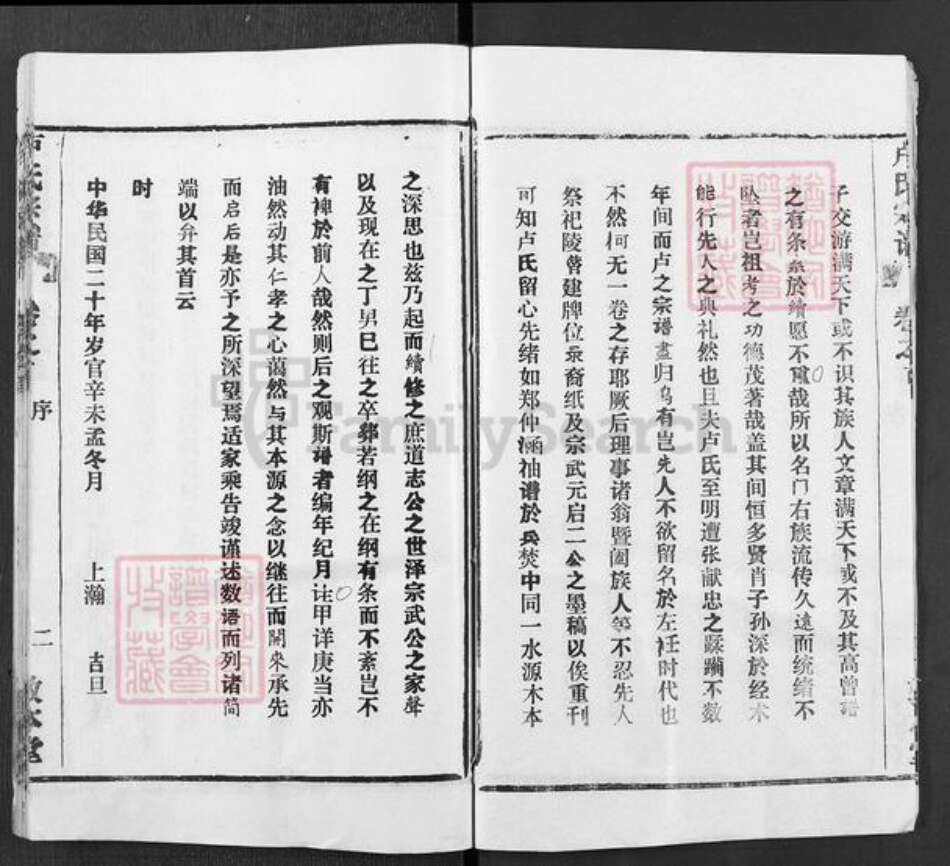 子交游满天下或不识其族人文章满天下或不及其高曾
之有条於绩愿不重哉所以名门右族流传久遠而统绪不
坠者岂祖考之功德茂著哉盖其间恒多贤肖子孙深於经术
能行先人之典礼然也且夫卢氏至明遭张献忠之蹂躏不数
年间而卢之宗谱盡归乌有岂先人不欲留名於左衽时代也
不然柯无一卷之存耶厥后理事诸翁暨阖族人等不忍先人
祭祀陵曾建牌位录裔纸及宗武元启二公之墨稿以俟重刊
可知卢氏留心先绪如郑仲涵袖谱於兵焚中同一水源木本
之深思也兹乃起而續修之庶道志公之世泽宗武公之家聲
以及现在之丁男已往之卒葬若纲之在纲有条而不紊岂不
有裨於前人哉然则后之观斯谱者编年纪月註甲详庚当亦
油然动其仁孝之心蔼然与其本源之念以继往而開来承先
而启后是亦予之所深望焉适家乘告竣谨述数语而列诸简
端以弁其首云
时
中华民国二十年岁官辛未孟冬月 上瀚 吉旦
序
二
FamilySearch